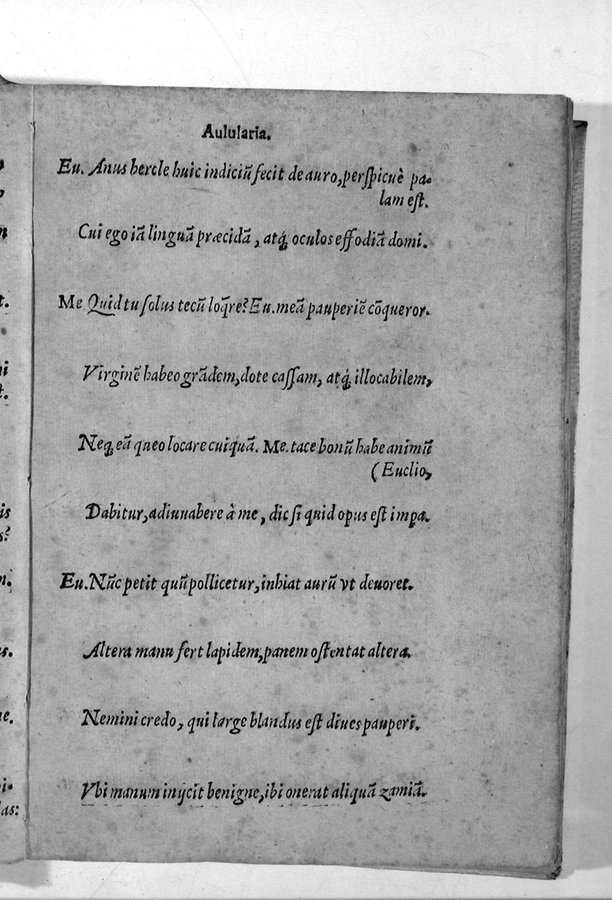 Aulularia.
Eu. Anus hercle huic indiciũ fecit de auro, perſpicuè pa-
lam eſt.
Cui ego iã linguã præcidã, atq́; oculos effodiã domi.
Me Quid tu ſolus tecũ loq̃re? Eu. meã pauperiẽ cõqueror.
Virginẽ habeo grãdem, dote caſſam, atq́; illocabilem,
Neq; eã queo locare cuiquã. Me. tace bonũ habe animũ
(Euclio,
Dabitur, adiuuabere à me, dic ſi quid opus eſt impa.
Eu. Nũc petit quũ pollicetur, inhiat aurũ vt deuoret.
Altera manu fert lapidem, panem oſtentat altera.
Nemini credo, qui large blandus eſt diues pauperi.
Vbi manum inijcit benigne, ibi onerat aliquã zamiã.